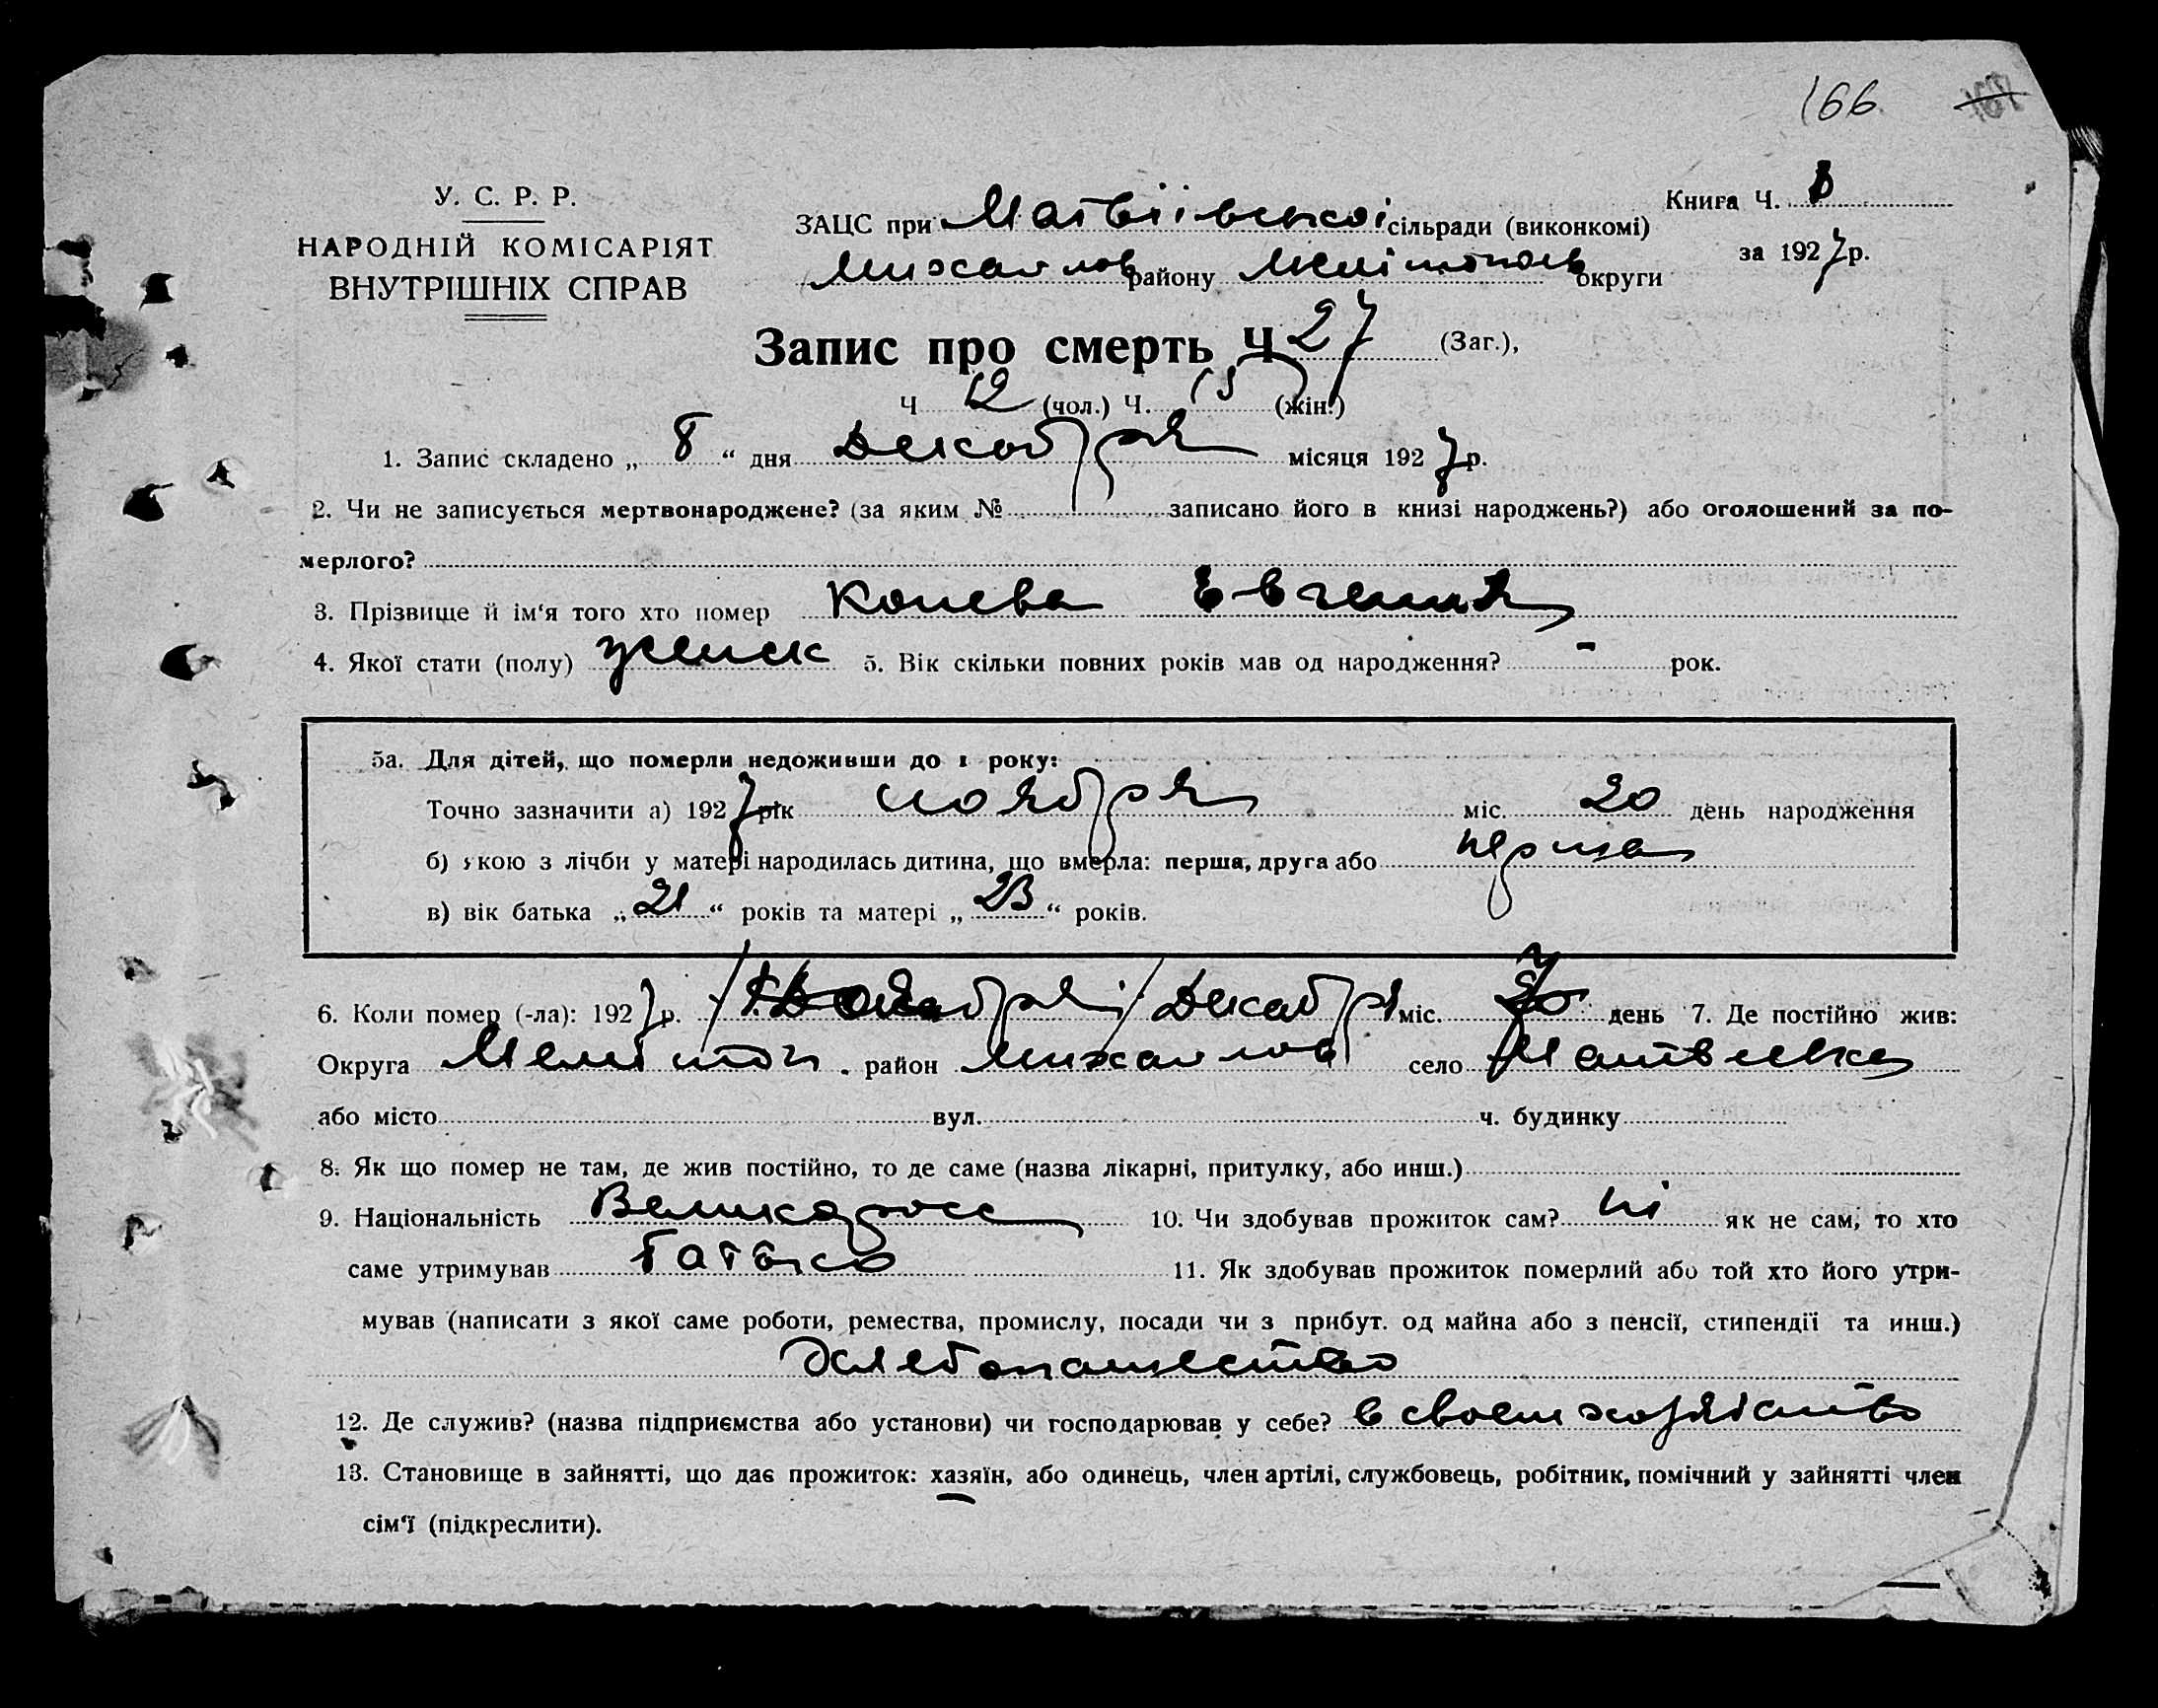 166
У. С. Р. Р.
НАРОДНІЙ КОМІСАРІЯТ
ВНУТРІШНІХ СПРАВ
Книга Ч.
за 1927 р.
ЗАЦС при Матвіївськоі сільради (виконкомі)
Михайлов району Мелітополь округи
Запис про смерть Ч 27 (Заг.),
Ч 12 (чол.) Ч. 15 (жін.)
1. Запис складено „ 8 “ дня Декабря місяця 1927 р.
2. Чи не записується мертвонароджене? (за яким № записано його в книзі народжень?) або оголошений за по-
мерлого?
3. Прізвище й ім‘я того хто помер Конева Евгения
4. Якої стати (полу) женск 5. Вік скільки повних років мав од народження? - рок.
5а. Для дітей, що померли недоживши до 1 року:
Точно зазначити а) 1927 рік ноября міс. 20 день народження
б) якою з лічби у матері народилась дитина, що вмерла: перша, друга або перша
в) вік батька „ 21 “ років та матері „ 23 “ років.
6. Коли помер (-ла): 1927 р. Декабря міс. 7 день 7. Де постійно жив:
Округа Мелітоп. район Михайлов село Матвеевка
або місто вул. ч. будинку
8. Як що помер не там, де жив постійно, то де саме (назва лікарні, притулку, або инш.)
9. Національність Великоросс 10. Чи здобував прожиток сам? ні як не сам, то хто
саме утримував батько 11. Як здобував прожиток померлий або той хто його утри-
мував (написати з якої саме роботи, ремества, промислу, посади чи з прибут. од майна або з пенсії, стипендії та инш.)
хлебопашество
12. Де служив? (назва підприємства або установи) чи господарював у себе? в своем хозяйство
13. Становище в зайнятті, що дає прожиток: хазяїн, або одинець, член артілі, службовець, робітник, помічний у зайнятті член
сім‘ї (підкреслити).